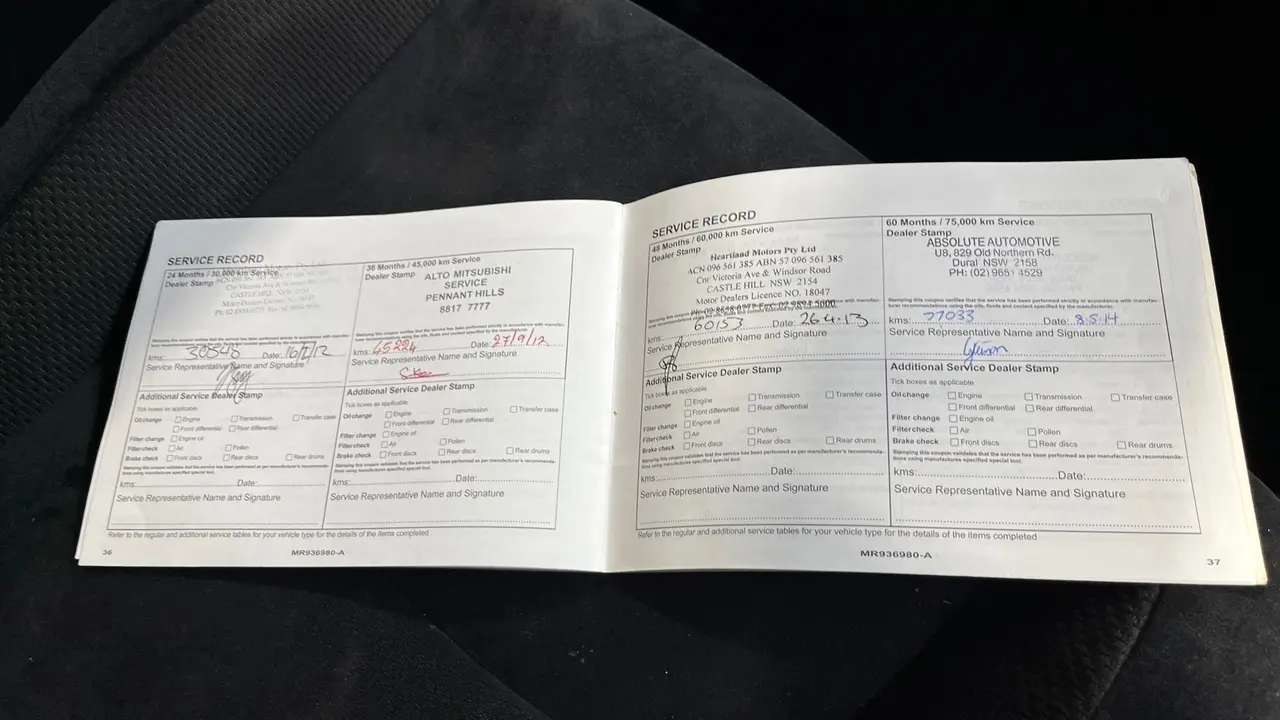 SERVICE RECORD
24 Months / 30,000 km Service
Dealer Stamp
ACN 096 561 385
Cnr Victoria Ave & Windsor Road
CASTLE HILL NSW 2154
Motor Dealers Licence NO. 18047
Stamping this coupon verifies that the service has been performed strictly in accordance with manufac-
turer recommendations using the oils, fluids and content specified by the manufacturer.
kms: 30548 Date: 16/2/12
Service Representative Name and Signature
Additional Service Dealer Stamp
Tick boxes as applicable
Oil change Engine Transmission Transfer case
Front differential Rear differential
Filter change Engine oil
Filter check Air Pollen
Brake check Front discs Rear discs Rear drums
Stamping this coupon validates that the service has been performed as per manufacturer's recommenda-
tions using manufactures specified special tool.
kms: Date:
Service Representative Name and Signature
36 Months / 45,000 km Service
Dealer Stamp
ALTO MITSUBISHI
SERVICE
PENNANT HILLS
8817 7777
Stamping this coupon verifies that the service has been performed strictly in accordance with manufac-
turer recommendations using the oils, fluids and content specified by the manufacturer.
kms: 45224 Date: 27/9/12
Service Representative Name and Signature
Additional Service Dealer Stamp
Tick boxes as applicable
Oil change Engine Transmission Transfer case
Front differential Rear differential
Filter change Engine oil
Filter check Air Pollen
Brake check Front discs Rear discs Rear drums
Stamping this coupon validates that the service has been performed as per manufacturer's recommenda-
tions using manufactures specified special tool.
kms: Date:
Service Representative Name and Signature
Refer to the regular and additional service tables for your vehicle type for the details of the items completed
36
MR936980-A
SERVICE RECORD
48 Months / 60,000 km Service
Dealer Stamp
Heartland Motors Pty Ltd
ACN 096 561 385 ABN 57 096 561 385
Cnr Victoria Ave & Windsor Road
CASTLE HILL NSW 2154
Motor Dealers Licence NO. 18047
Stamping this coupon verifies that the service has been performed strictly in accordance with manufac-
turer recommendations using the oils, fluids and content specified by the manufacturer.
kms: 60153 Date: 26.4.13
Service Representative Name and Signature
Additional Service Dealer Stamp
Tick boxes as applicable
Oil change Engine Transmission Transfer case
Front differential Rear differential
Filter change Engine oil
Filter check Air Pollen
Brake check Front discs Rear discs Rear drums
Stamping this coupon validates that the service has been performed as per manufacturer's recommenda-
tions using manufactures specified special tool.
kms: Date:
Service Representative Name and Signature
60 Months / 75,000 km Service
Dealer Stamp
ABSOLUTE AUTOMOTIVE
U8, 829 Old Northern Rd.
Dural NSW 2158
PH: (02) 9651 4529
Stamping this coupon verifies that the service has been performed strictly in accordance with manufac-
turer recommendations using the oils, fluids and content specified by the manufacturer.
kms: 77033 Date: 8.5.14
Service Representative Name and Signature
Additional Service Dealer Stamp
Tick boxes as applicable
Oil change Engine Transmission Transfer case
Front differential Rear differential
Filter change Engine oil
Filter check Air Pollen
Brake check Front discs Rear discs Rear drums
Stamping this coupon validates that the service has been performed as per manufacturer's recommenda-
tions using manufactures specified special tool.
kms: Date:
Service Representative Name and Signature
Refer to the regular and additional service tables for your vehicle type for the details of the items completed
MR936980-A
37